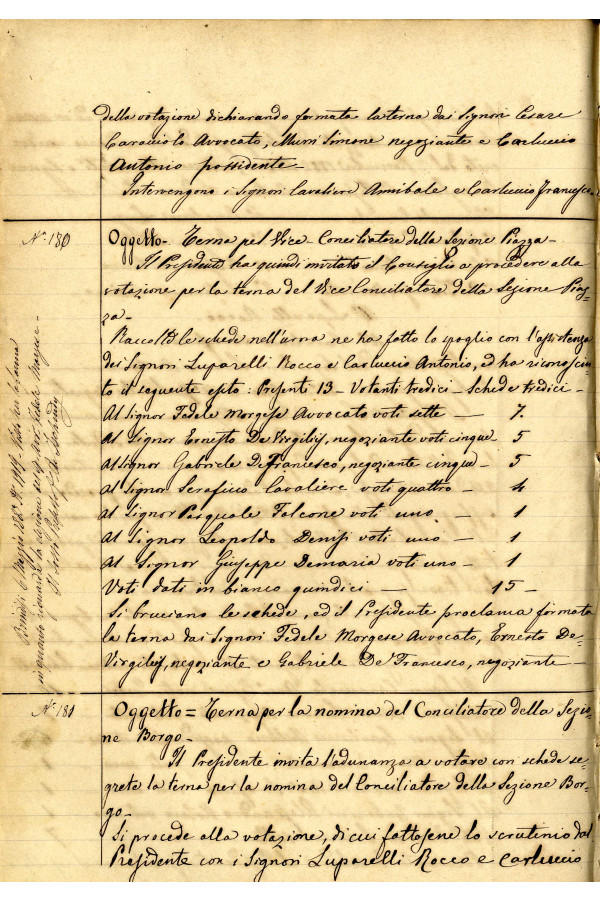 della votazione dichiarando formata la terna dai Signori Cesare
Caraciolo Avvocato, Murri Simone negoziante e Carluccio
Antonio possidente-
Intervengono i Signori Cavaliere Annibale e Carluccio Francesco
N.° 180
Oggetto- Terna pel Vice-Conciliatore della Sezione Piazza-
Il Presidente ha quindi invitato il Consiglio a procedere alla
votazione per la terna del Vice Conciliatore della Sezione Piaz-
za-
Raccolte le schede nell'urna ne ha fatto lo spoglio con l'assistenza
dei Signori Luparelli Rocco e Carluccio Antonio, ed ha riconosciu-
to il seguente esito: Presenti 13- Votanti tredici- Schede tredici-
Al Signor Fedele Morgese Avvocato voti sette — 7
Al Signor Ernesto De Virgiliis, negoziante voti cinque- 5
Al Signor Gabriele De Francesco, negoziante cinque- 5
Al Signor Serafino Cavaliere voti quattro- 4
Al Signor Pasquale Falcone voti uno - 1
Al Signor Leopoldo Denisi voti uno - 1
Al Signor Giuseppe Demaria voti uno- 1
Voti dati in bianco quindici — 15-
Si bruciano le schede, ed il Presidente proclama formata
la terna dai Signori Fedele Morgese Avvocato, Ernesto De-
Virgiliis, negoziante e Gabriele De Francesco, negoziante-
N.° 181
Oggetto = Terna per la nomina del Conciliatore della Sezio-
ne Borgo-
Il Presidente invita l'adunanza a votare con schede se-
grete la terna per la nomina del Conciliatore della Sezione Bor-
go-
Si procede alla votazione, di cui fattosene lo scrutinio dal
Presidente con i Signori Luparelli Rocco e Carluccio